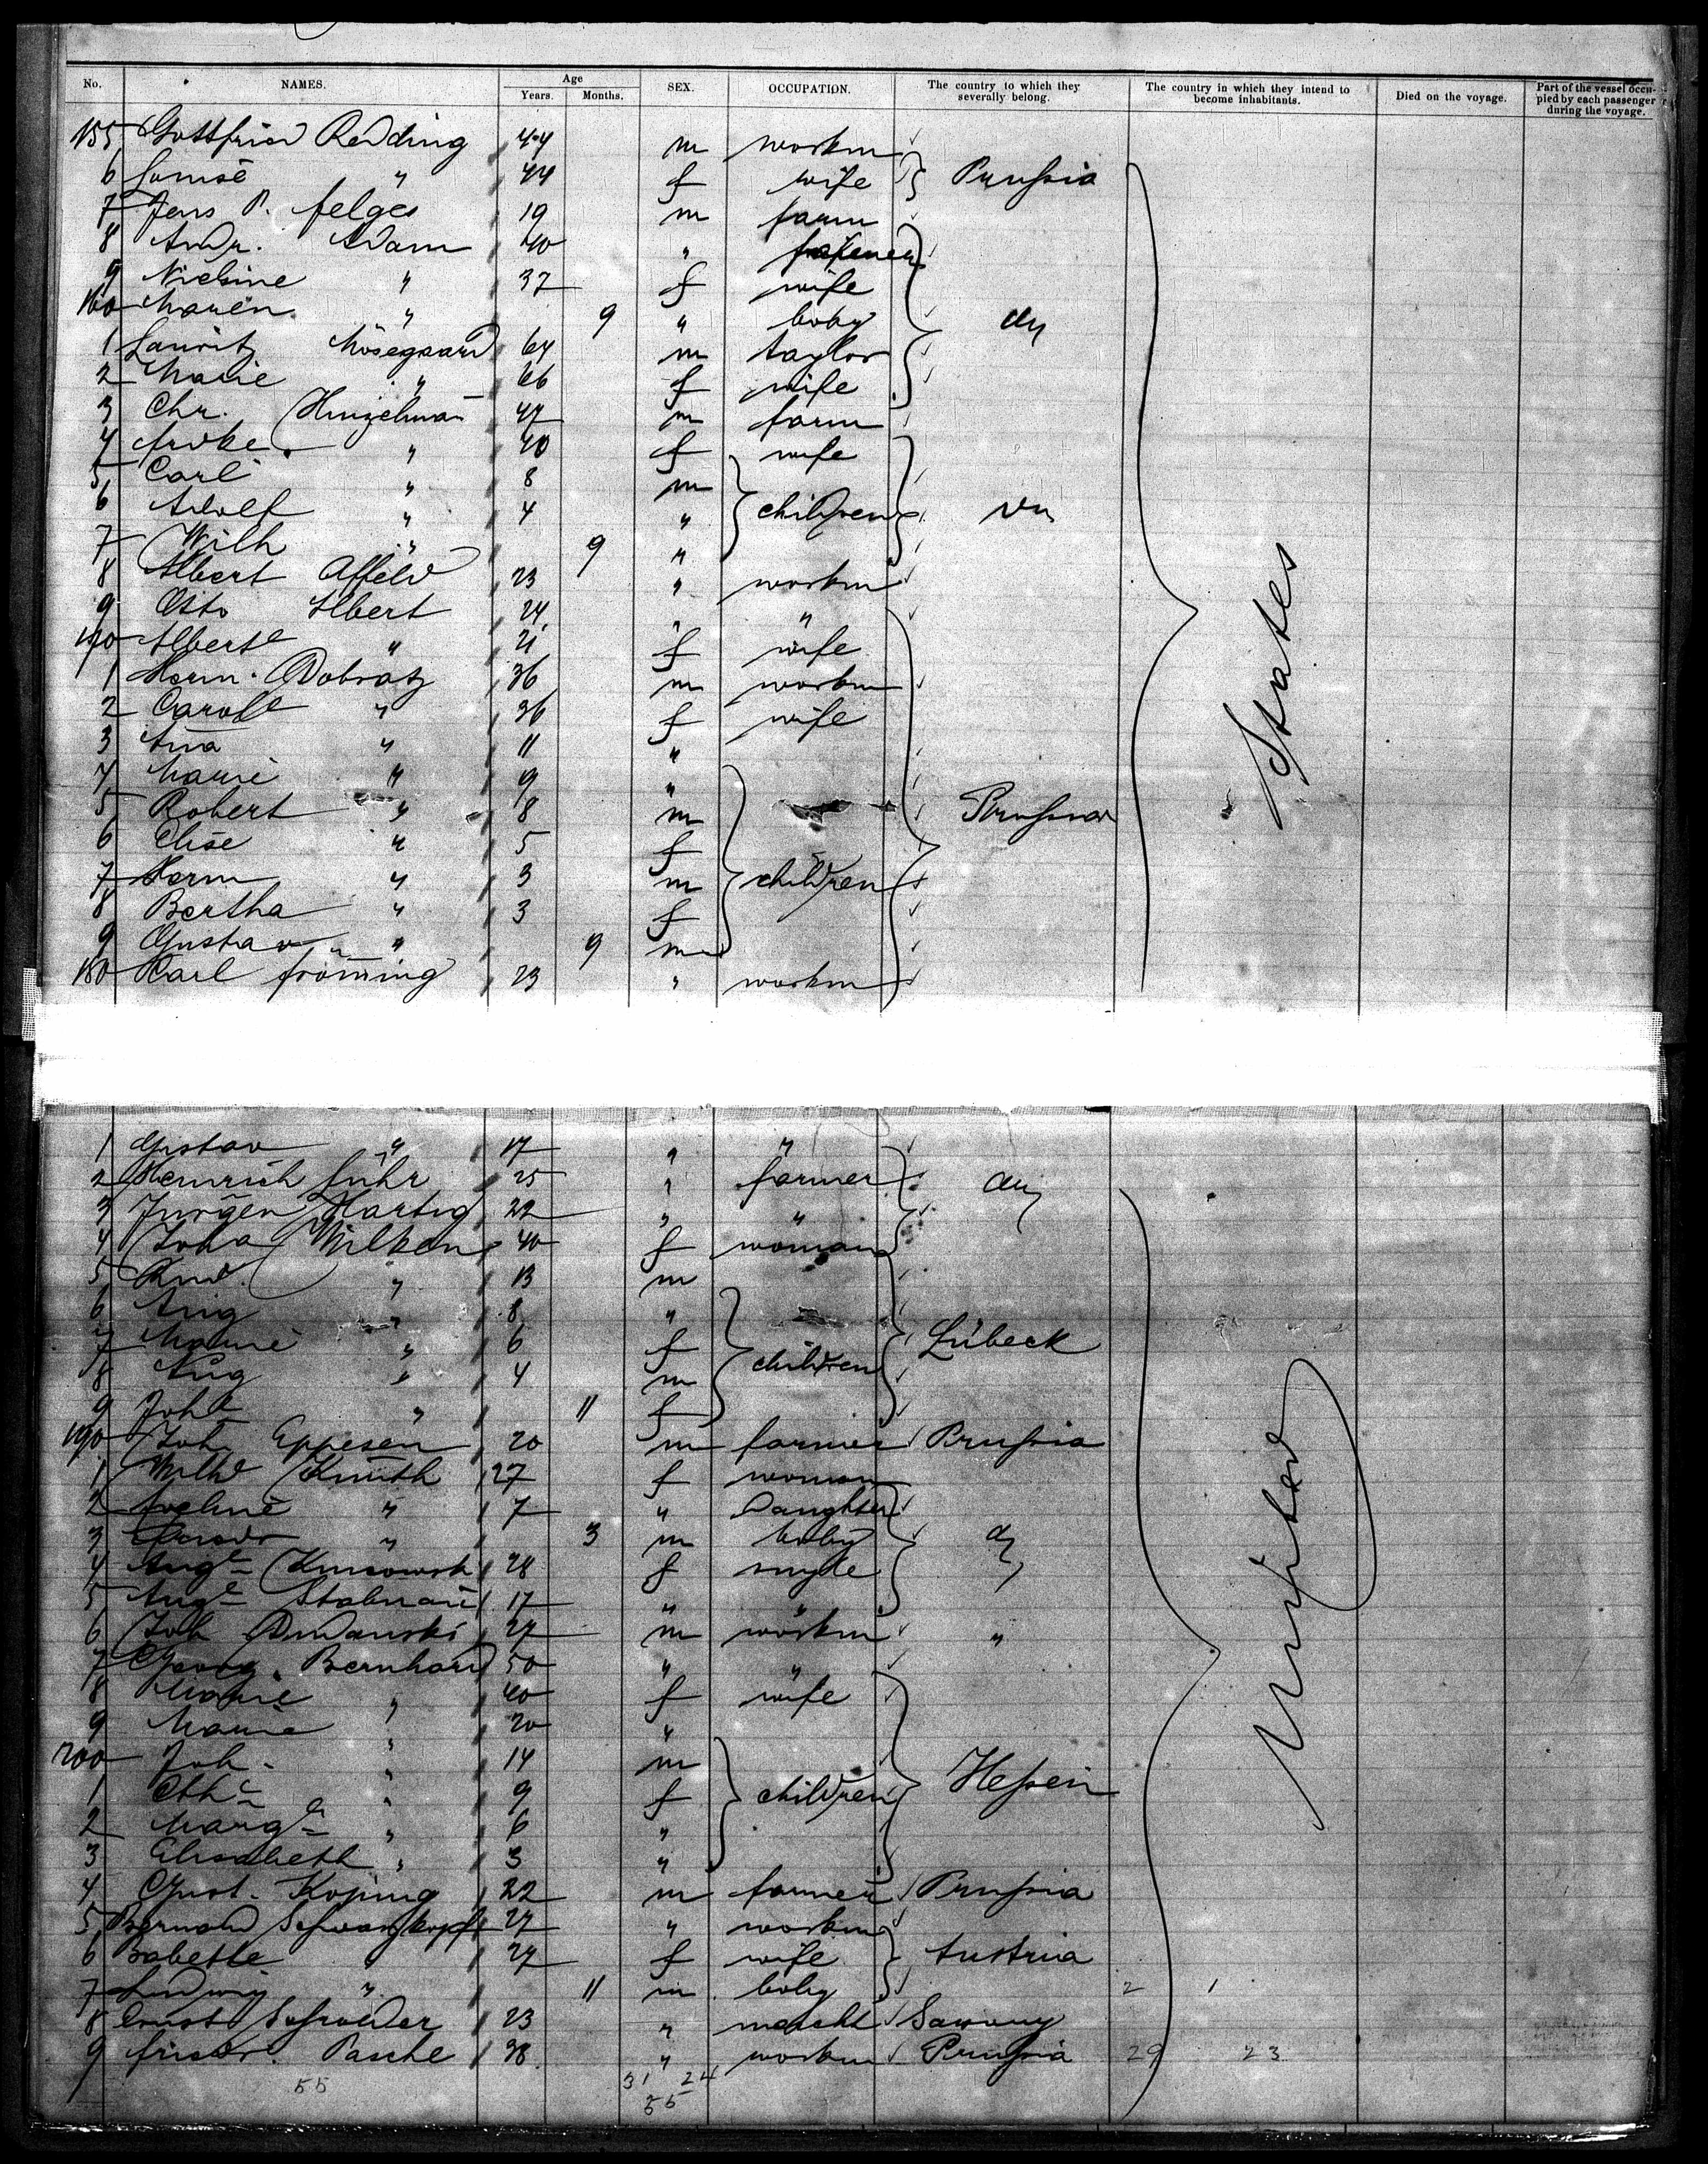 No. NAMES. Age Years. Months. SEX. OCCUPATION. The country to which they severally belong. The country in which they intend to become inhabitants. Died on the voyage. Part of the vessel occupied by each passenger during the voyage.
155 Gottfried Redding 44 m workm
6 Louise " 44 f wife Prussia
7 Jens P. 19 m farm
8 Andr. Adam 40 "
9 Nielsine " 37 f wife
160 Maren " 9 " baby do
1 Lauritz Mosegaard 64 m taylor
2 Marie " 66 f wife
3 Chr. Hinzelman 47 m farm
4 " 40 f wife
5 Carl " 8 m
6 Adolf " 4 " children do
7 Wilh " 9 "
8 Albert Affeld 23 " workm
9 Otto Albert 24 " "
170 Alberte " 21 f wife
1 Herm. Dobratz 36 m workm
2 Carole " 36 f wife
3 Ana " 11 "
4 Marie " 9 "
5 Robert " 8 m Prussia
6 Elise " 5 f
7 Herm " 3 m children
8 Bertha " 3 f
9 Gustav " 9 m
180 Carl Fröming 23 " workm
States
1 Gustav " 17 " "
2 Heinrich Führ 25 " farmer do
3 Jürgen Hartig 22 " "
4 Joha Wilken 40 f woman
5 " 13 m
6 " 8 "
7 Marie " 6 f Lübeck
8 Aug " 4 m children
9 Joh " 11 f
190 Joh Eppesen 20 m farmer Prussia
1 Wilhe Knuth 27 f woman
2 Aveline " 7 " Daughter
3 " 3 m baby do
4 Auge 28 f single
5 Auge Stalman 17 " "
6 Joh 27 m workm "
7 Georg Bernhard 50 " "
8 Marie " 40 f wife
9 Marie " 20 "
200 Joh. " 14 m
1 Cthe " 9 f children Hessen
2 Marge " 6 "
3 Elisabeth " 3 "
4 Gust. Koping 22 m farmer Prussia
5 Bernard Schwarzkopf 27 " workm
6 Babette " 27 f wife Austria
7 Ludwig " 11 m baby 2 1
8 Ernst Schroeder 23 " Saxony
9 Friedr. Pasche 38 " workm Prussia 29 23
United
55 31 24
55